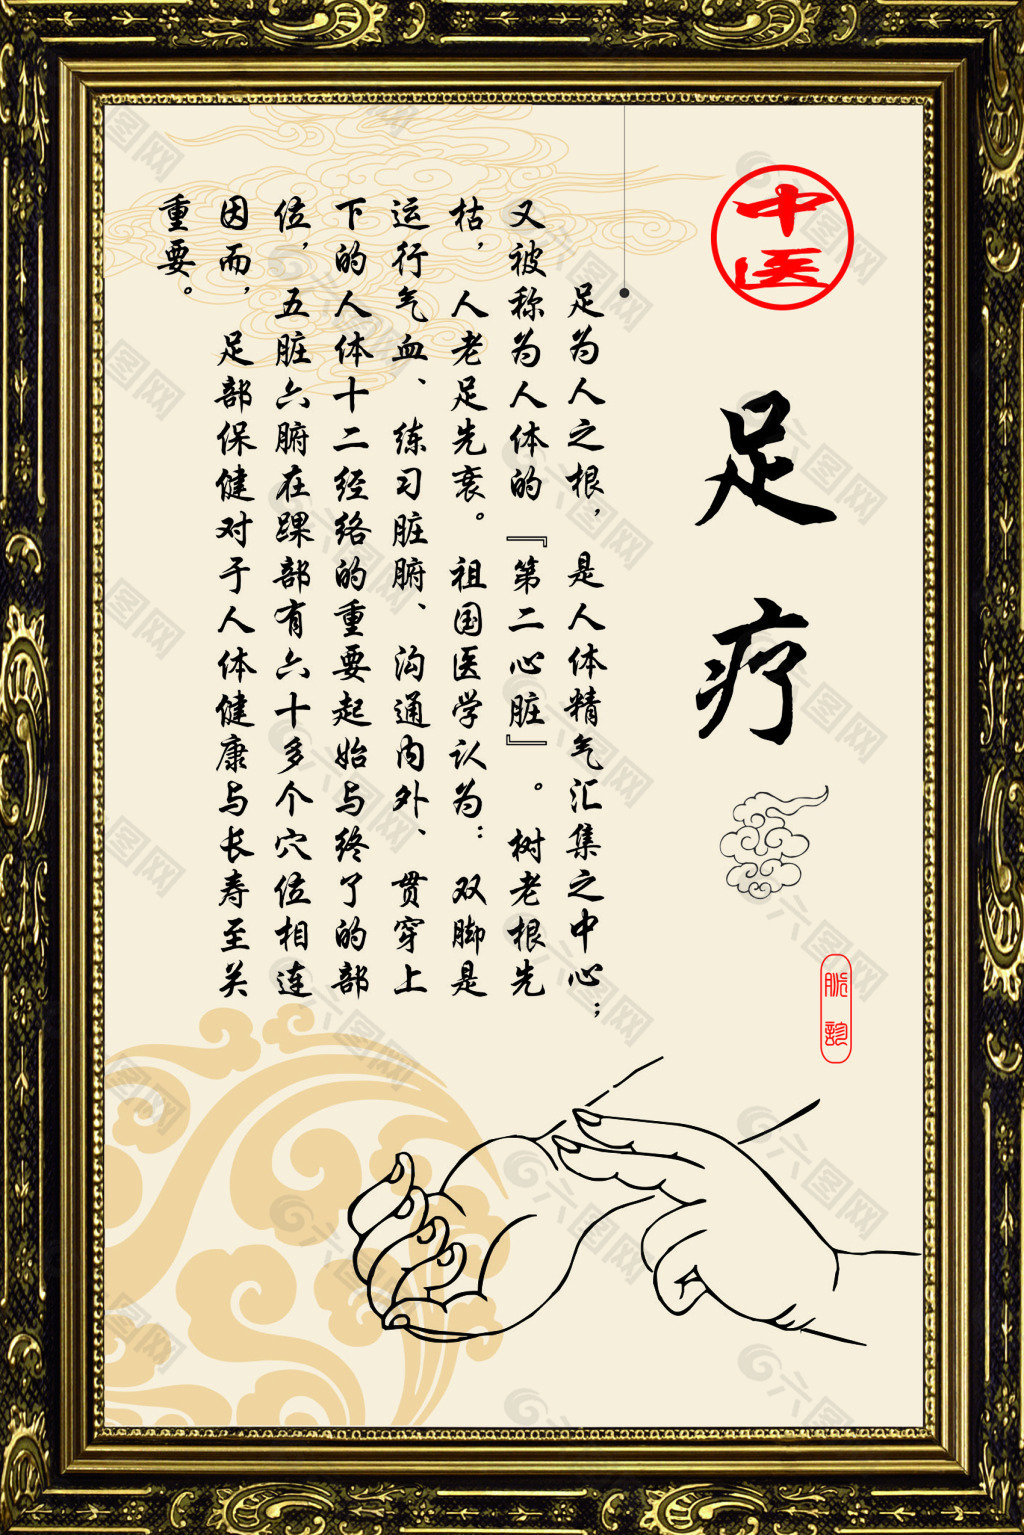 中医
足疗
脈診
足为人之根，是人体精气汇集之中心；
又被称为人体的『第二心脏』。树老根先
枯，人老足先衰。祖国医学认为：双脚是
运行气血、练习脏腑、沟通内外、贯穿上
下的人体十二经络的重要起始与终了的部
位，五脏六腑在踝部有六十多个穴位相连
因而，足部保健对于人体健康与长寿至关
重要。
六图网